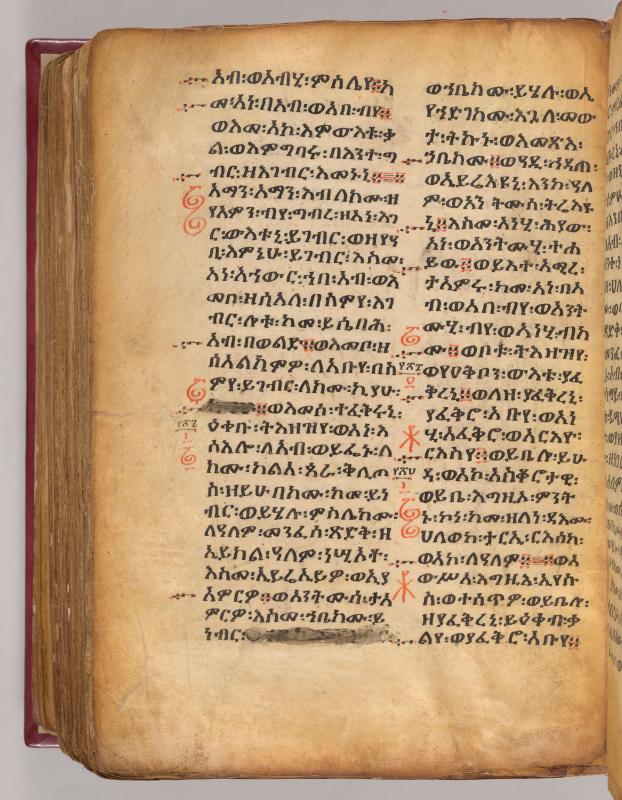 አብ፡ወአብሂ፡ምስሌየ፡፡አ
መ፡አነ፡በአብ፡ወአበ፡ብየ፡፡
ወእመ፡አኮ፡እምውእቱ፡ቃ
ል፡ወእምግባሩ፡በእንተ፡ግ
ብር፡ዘእገብር፡እመኑኒ፡፡
አማን፡አማን፡እብለክሙ፡ዘ
የአምን፡ብየ፡ግብረ፡ዘአነ፡እገ
ር፡ውእቱኒ፡ይገብር፡ወዘየዓ
ቢ፡እምኔሁ፡ይገብር፡እስመ፡
አነ፡አሐውር፡ኀበ፡አብ፡ወእ
መቦ፡ዘሰአለ፡በስምየ፡እገ
ብር፡ሎቱ፡ከመ፡ይሴባሕ፡
አብ፡በወልዱ፡፡ወእመቦ፡ዘ
ሰአልክምዎ፡ለአቡየ፡በስ
ምየ፡ይገብር፡ለክሙ፡ኪያሁ፡
ወእመሰ፡ተፈቅሩኒ፡
ዕቀቡ፡ትእዛዝየ፡ወአነ፡እ
ስእሎ፡ለአብ፡ወይፌኑ፡ለ
ክሙ፡ካልአ፡ጰራ፡ቅሊጦ
ስ፡ዘይሁበክሙ፡ከመ፡ይነ
ብር፡ወይሄሉ፡ምስሌክሙ፡
ለዓለም፡መንፈሰ፡ጽድቅ፡ዘ
ኢይክል፡ዓለም፡ነሢኦቶ፡
እስመ፡ኢይሬእይዎ፡ወኢያ
አምርዎ፡፡ወአንትሙሰ፡ታአ
ምርዎ፡እስመ፡ኀቤክሙ፡ይ
ነብር፡
ወኀቤክሙ፡ይሄሉ፡ወኢ
የኀድገክሙ፡እጓለ፡መው
ታ፡ትኩኑ፡ወእመጽእ፡
ኀቤክሙ፡፡ወዓዲ፡ኀዳጠ፡
ወኢይሬእየኒ፡እንከ፡ዓለ
ም፡ወአንትሙሰ፡ትሬእዩ
ኒ፡፡እስመ፡አነሂ፡ሕያው፡
አነ፡ወአንትሙሂ፡ተሐ
ይዉ፡፡ወይእተ፡አሚረ፡
ታአምሩ፡ከመ፡አነ፡በአ
ብ፡ወአብ፡ብየ፡ወአንት
ሙሂ፡ብየ፡ወአነሂ፡ብክ
ሙ፡፡ወቦቱ፡ትእዛዝየ፡
ወየሀቅቦን፡ውእቱ፡ያፈ
ቅረኒ፡፡ወለዘ፡ያፈቅረኒ፡
ያፈቅሮ፡አቡየ፡ወአነ
ሂ፡አፈቅሮ፡ወአርእዮ፡
ርእስየ፡፡ወይቤሎ፡ይሁ
ዳ፡ወአኮ፡አስቆሮታዊ፡
ወይቤ፡እግዚኦ፡ምንት
ኑ፡ኮነ፡ከመ፡ዘለነ፡ዳእሙ፡
ሀለወከ፡ታርኢ፡ርእሰከ፡
ወአኮ፡ለዓለም፡፡ወአ
ውሥአ፡እግዚእ፡ኢየሱ
ስ፡ወተሰጥዎ፡ወይቤሎ፡
ዘያፈቅረኒ፡ይዕቀብ፡ቃ
ልየ፡ወያፈቅሮ፡አቡየ፡፡